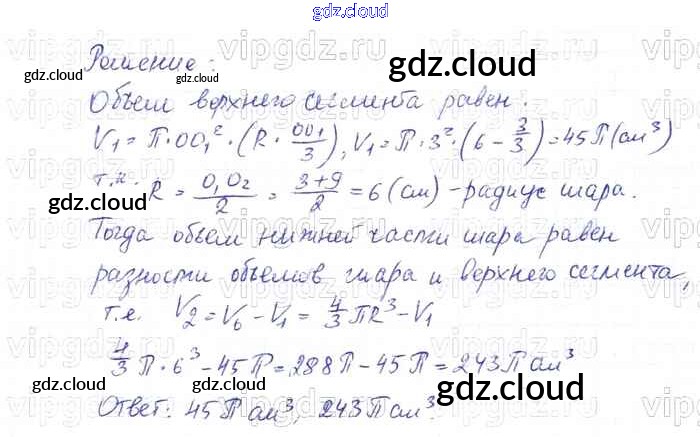 gdz.cloud
vipgdz.ru vipgdz.ru vipgdz.ru
Решение:
gdz.cloud gdz.cloud gdz.cloud
Объем верхнего сегмента равен:
V₁ = П·OO₁²·(R·OO₁/3), V₁ = П·3²·(6 − 3/3) = 45П (см³)
т.к. R = O₁O₂/2 = 3+9/2 = 6 (см) – радиус шара.
gdz.cloud gdz.cloud
Тогда объем нижней части шара равен
разности объемов шара и верхнего сегмента,
т.е. V₂ = Vб − V₁ = 4/3 ПR³ − V₁
4/3 П·6³ − 45П = 288П − 45П = 243П см³
gdz.cloud gdz.cloud gdz.cloud
Ответ: 45П см³, 243П см³.
gdz.cloud